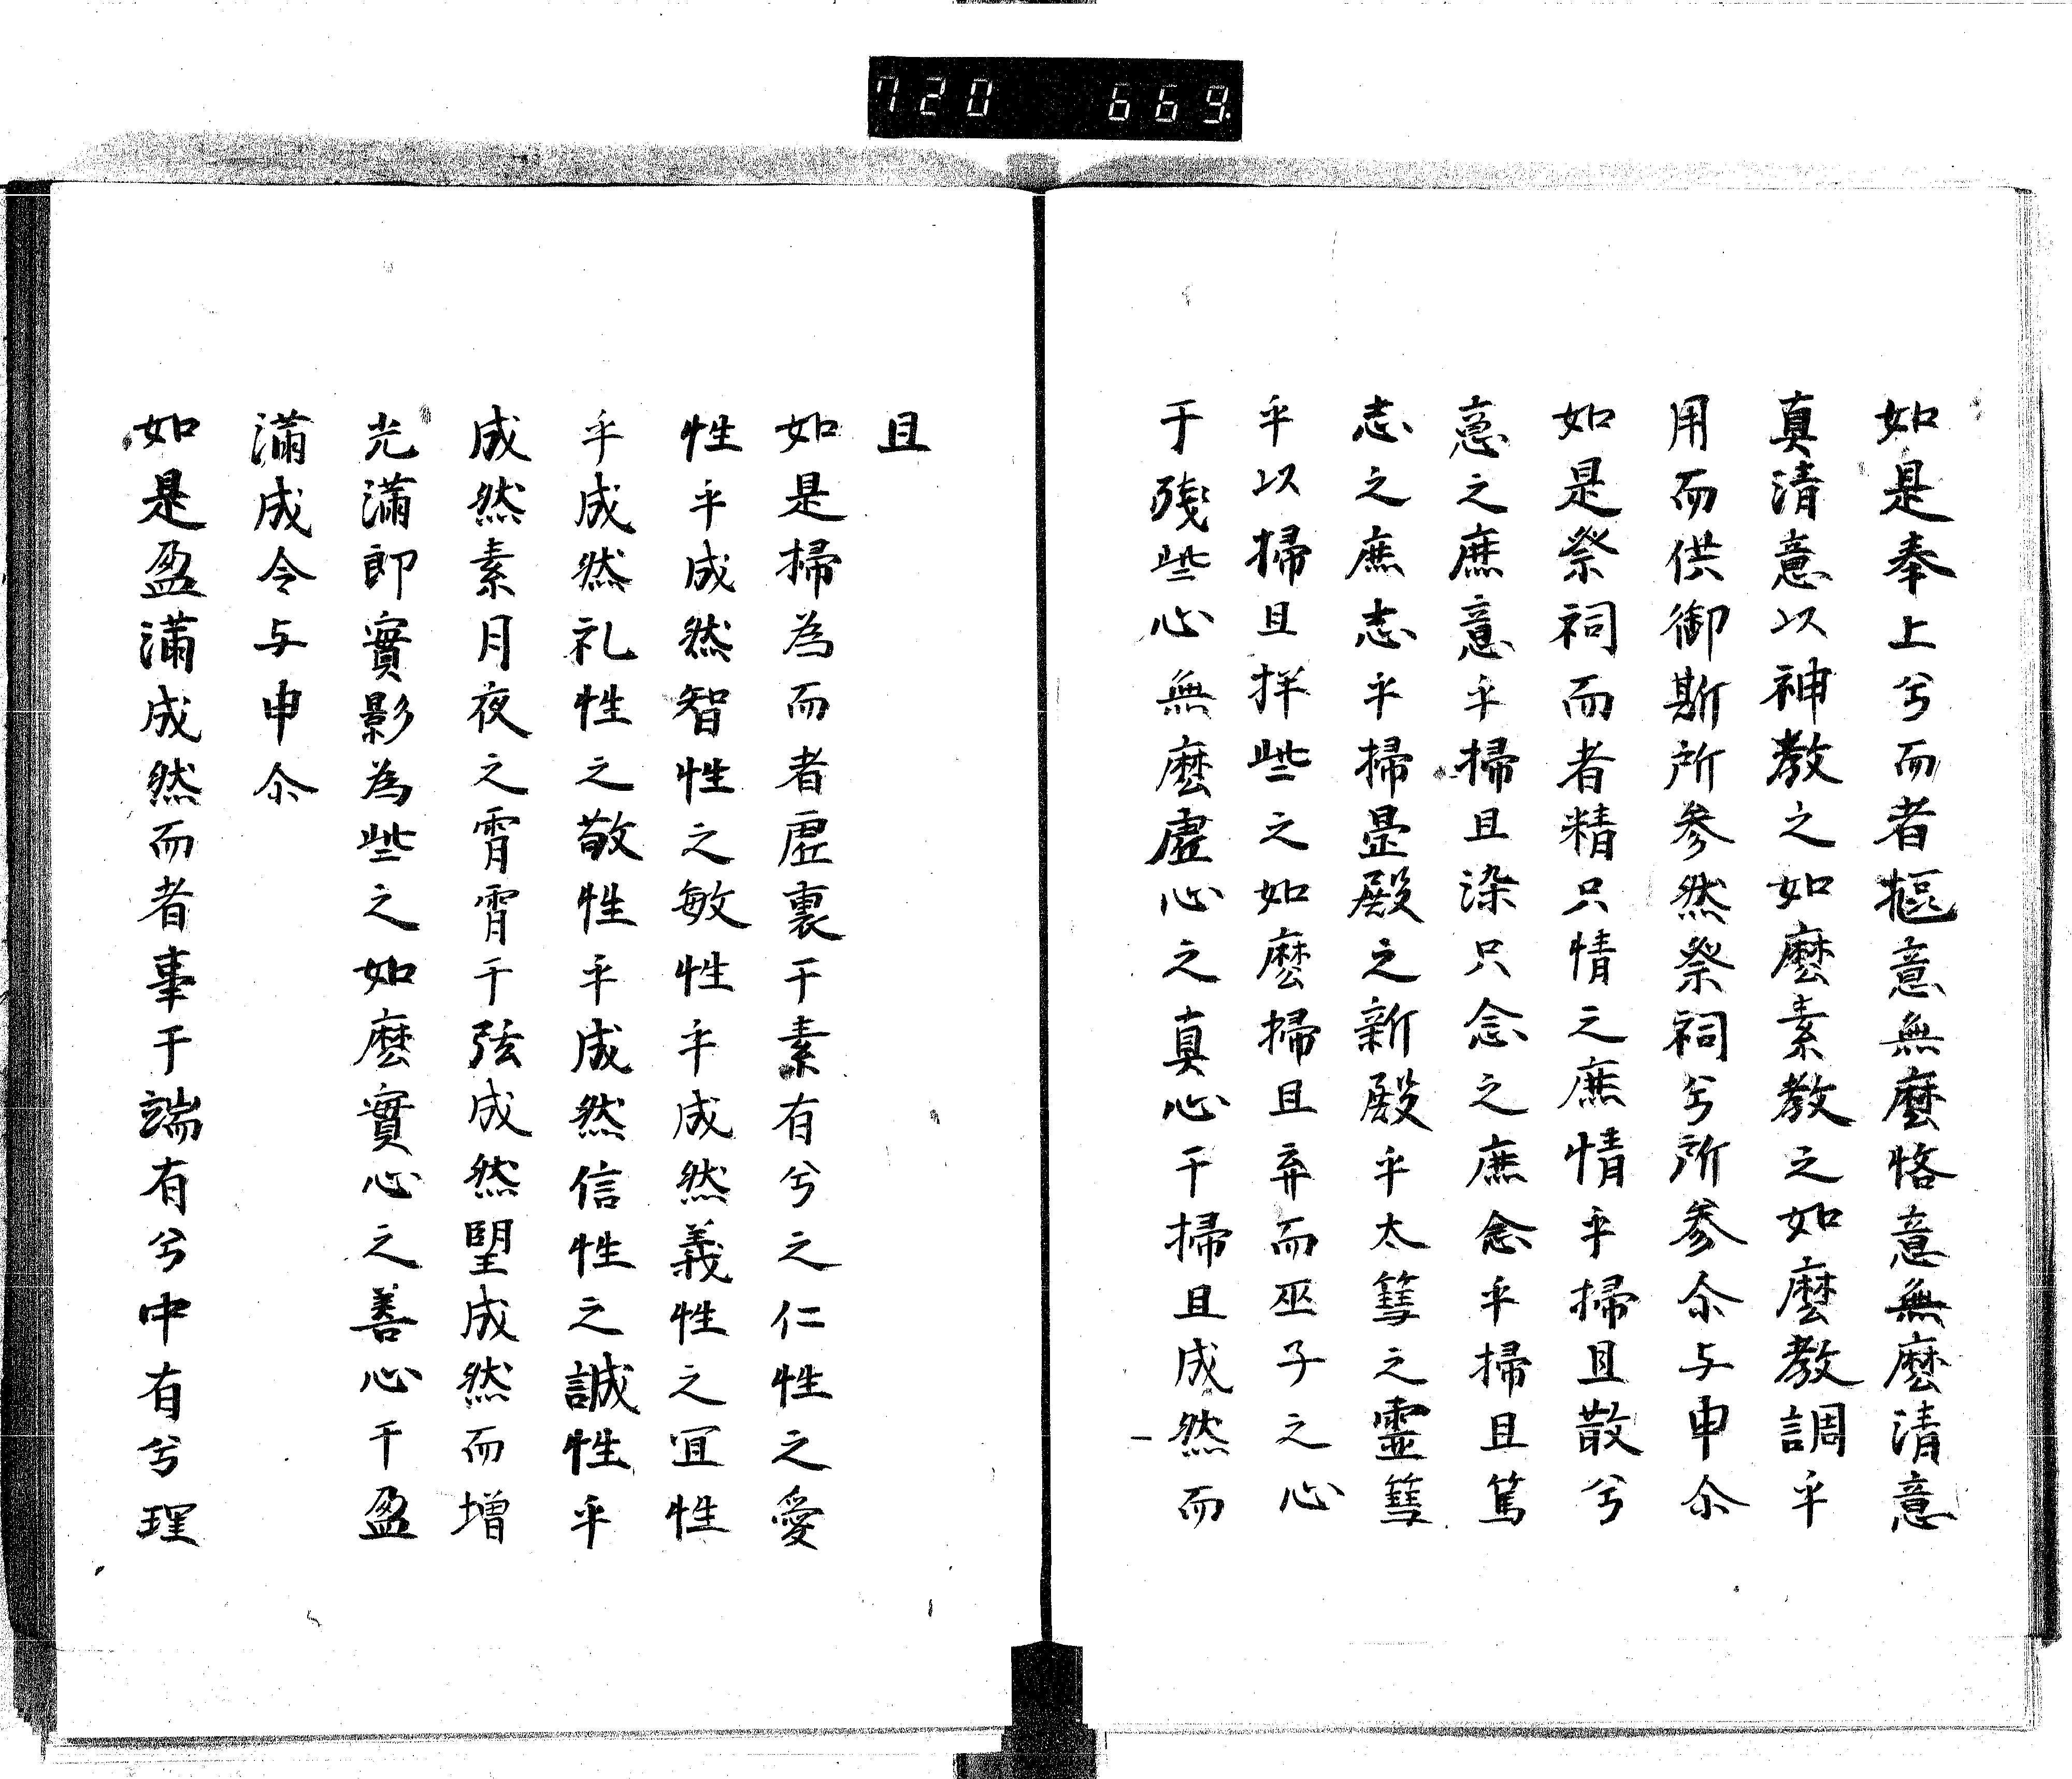 720 669
如是奉上兮而者摳意無麼悋意無麼清意
真清意以神教之如麼素教之如麼教調乎
用而供御斯所参然祭祠兮所参尒与申尒
如是祭祠而者精只情之庶情乎掃且散兮
意之庶意乎掃且染只念之庶念乎掃且篤
志之庶志乎掃曐殿之新殿乎太篲之靈篲
乎以掃且拝些之如麼掃且弃而巫子之心
于残些心無麼虚心之真心于掃且成然而
且
如是掃為而者虚裏于素有兮之仁性之愛
性乎成然智性之敏性乎成然義性之冝性
乎成然礼性之敬性乎成然信性之誠性乎
成然素月夜之霄霄于弦成然朢成然而増
光滿即實影為些之如麼實心之善心于盈
滿成令与申尒
如是盈滿成然而者事于端有兮中有兮理